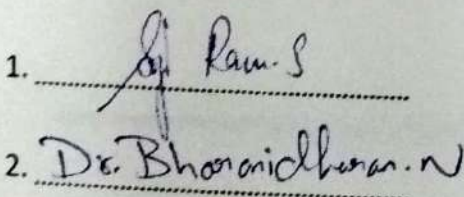 1. Saji Ram. S
2. Dr. Bharanidharan. N